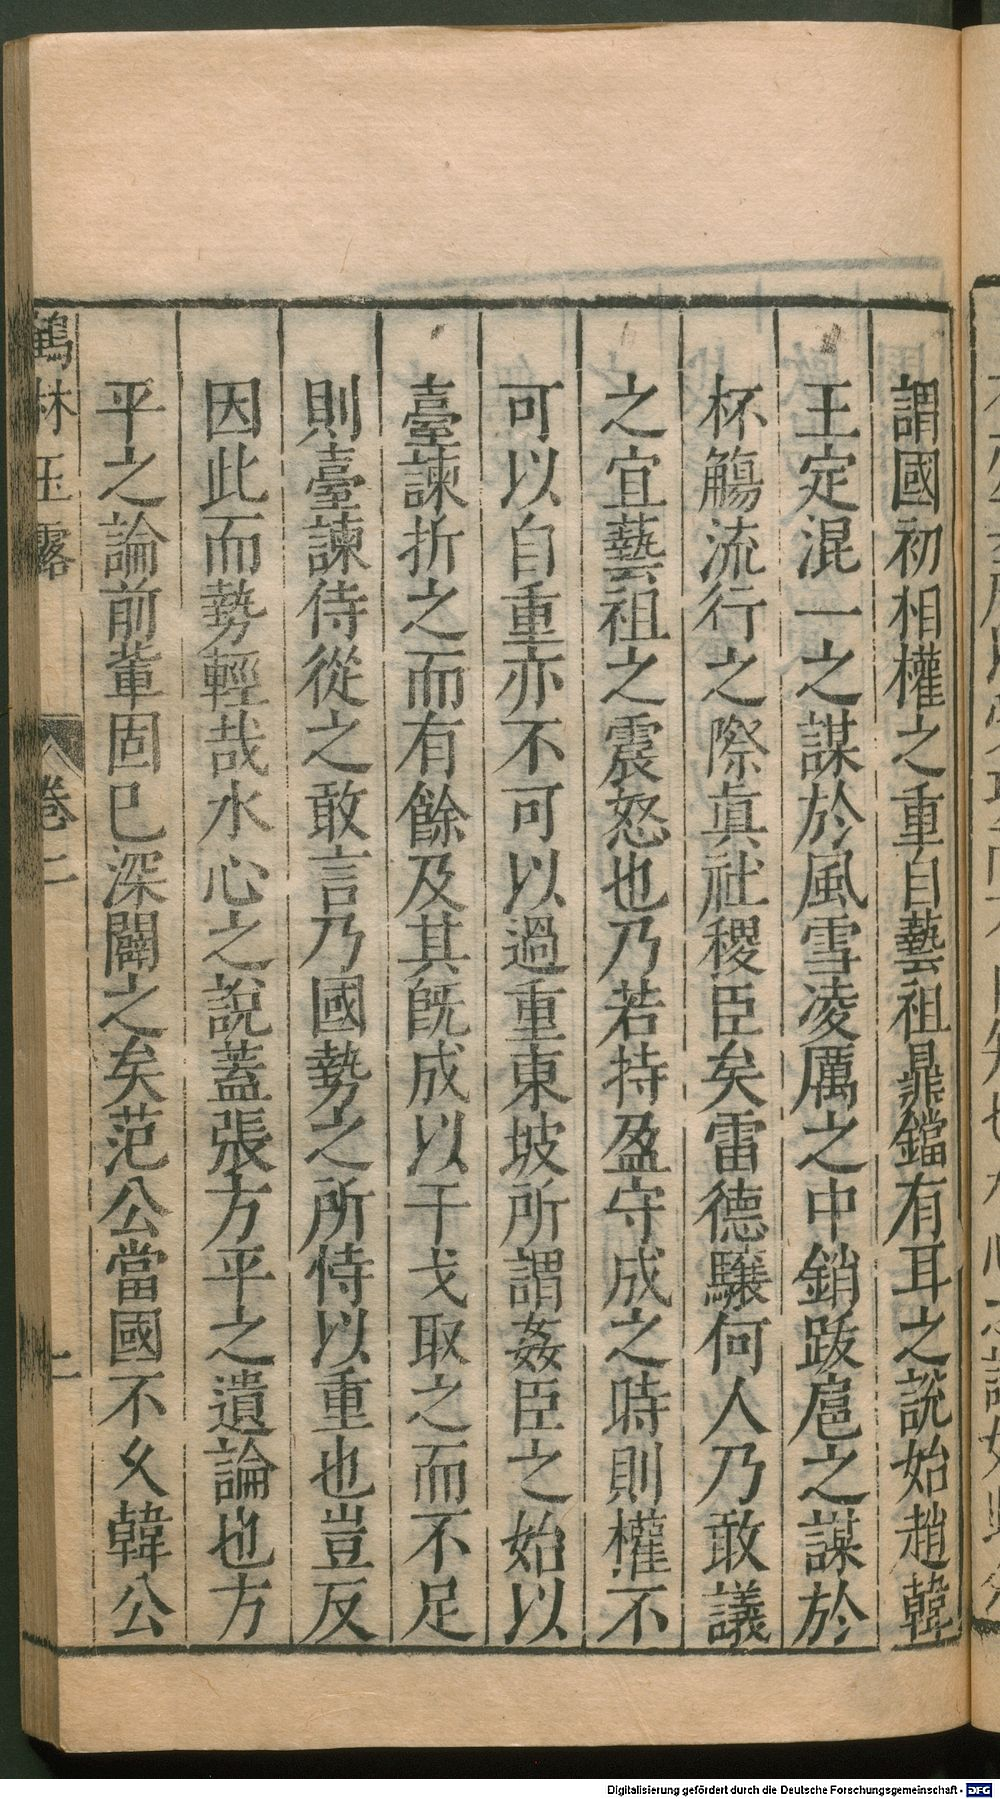 謂國初相權之重自藝祖鼎鐺有耳之說始趙韓
王定混一之謀於風雪凌厲之中銷跋扈之謀於
杯觴流行之際真社稷臣矣雷德驤何人乃敢議
之宜藝祖之震怒也乃若持盈守成之時則權不
可以自重亦不可以過重東坡所謂姦臣之始以
臺諫折之而有餘及其旣成以干戈取之而不足
則臺諫侍從之敢言乃國勢之所恃以重也豈反
因此而勢輕哉水心之說蓋張方平之遺論也方
平之論前輩固已深闢之矣范公當國不久韓公
鶴林玉露 卷二 二
Digitalisierung gefördert durch die Deutsche Forschungsgemeinschaft - DFG